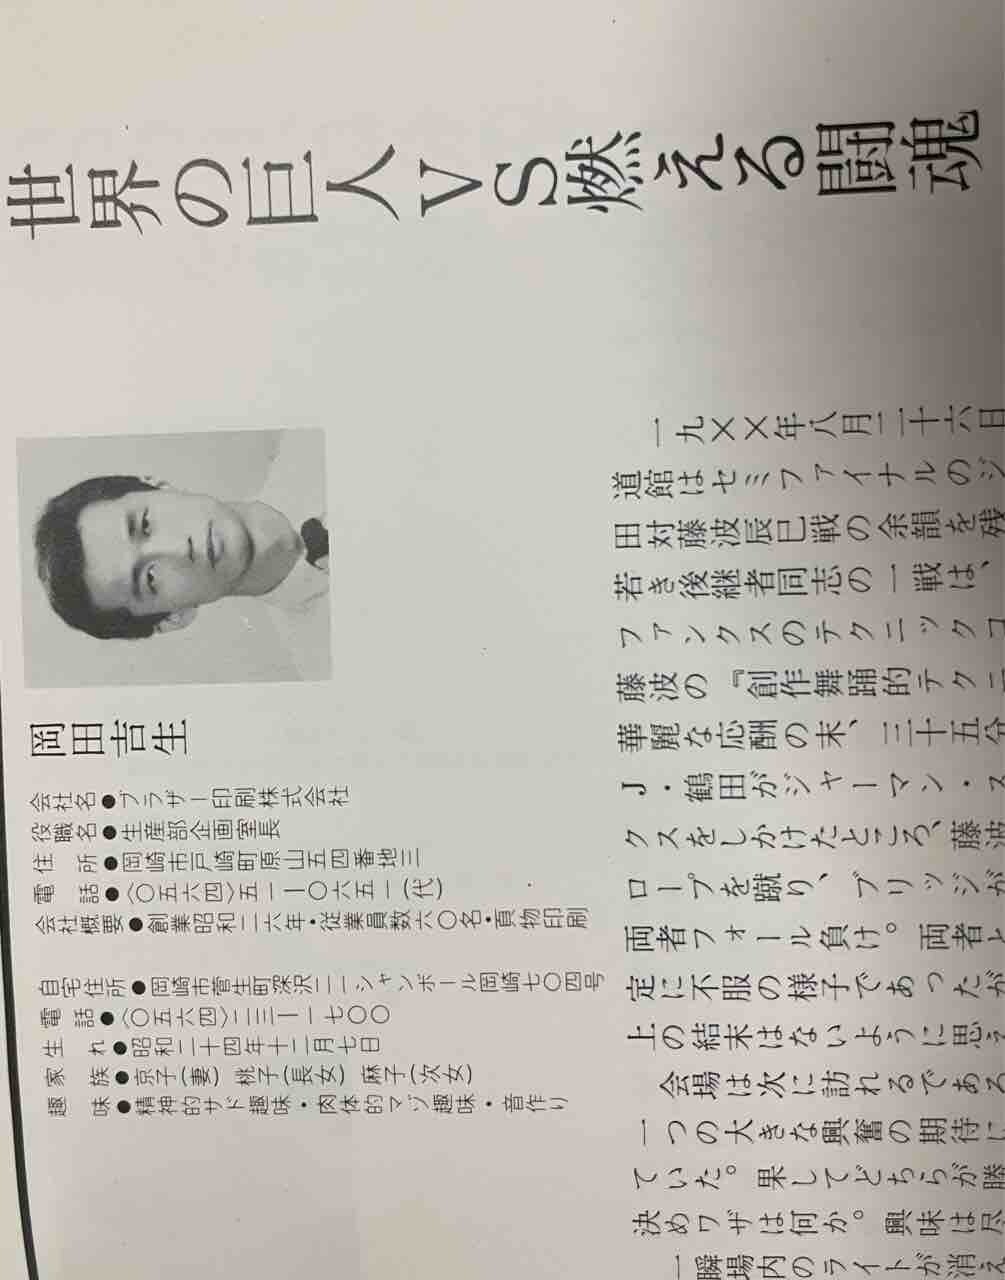 世界の巨人VS燃える闘魂
岡田吉生
会社名●ブラザー印刷株式会社
役職名●生産部企画室長
住　所●岡崎市戸崎町原山五四番地三
電　話●〈〇五六四〉五一ー〇六五一(代)
会社概要●創業昭和二六年・従業員数六〇名・頁物印刷
自宅住所●岡崎市菅生町深沢二一シャンボール岡崎七〇四号
電　話●〈〇五六四〉二三ー一七〇〇
生　れ●昭和二十四年十二月七日
家　族●京子(妻)　桃子(長女)　麻子(次女)
趣　味●精神的サド趣味・肉体的マゾ趣味・音作り
一九××年八月二十六日
道館はセミファイナルのジ
田対藤波辰巳戦の余韻を残
若き後継者同志の一戦は、
ファンクスのテクニックコ
藤波の『創作舞踊的テクニ
華麗な応酬の末、三十五分
J・鶴田がジャーマン・ス
クスをしかけたところ、藤波
ロープを蹴り、ブリッジが
両者フォール負け。両者と
定に不服の様子であったが
上の結末はないように思え
会場は次に訪れるであろ
一つの大きな興奮の期待に
ていた。果してどちらが勝
決めワザは何か。興味は尽
一瞬場内のライトが消え